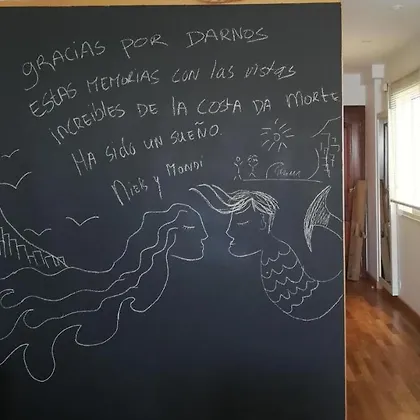 GRACIAS POR DARNOS
ESTAS MEMORIAS CON las vistas
INCREIBLES DE la COSTA DA MORTE
HA sido UN SUEÑO
Niels y MONDI